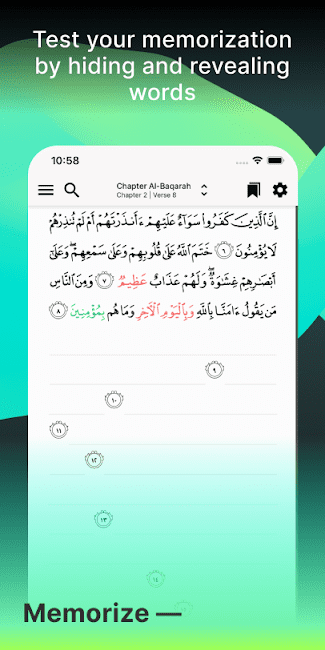 Test your memorization
by hiding and revealing
words
10:58
Chapter Al-Baqarah
Chapter 2 | Verse 8
إِنَّ ٱلَّذِينَ كَفَرُوا۟ سَوَآءٌ عَلَيْهِمْ ءَأَنذَرْتَهُمْ أَمْ لَمْ تُنذِرْهُمْ
لَا يُؤْمِنُونَ ٦ خَتَمَ ٱللَّهُ عَلَىٰ قُلُوبِهِمْ وَعَلَىٰ سَمْعِهِمْ ۖ وَعَلَىٰٓ
أَبْصَٰرِهِمْ غِشَٰوَةٌ ۖ وَلَهُمْ عَذَابٌ عَظِيمٌ ٧ وَمِنَ ٱلنَّاسِ
مَن يَقُولُ ءَامَنَّا بِٱللَّهِ وَبِٱلْيَوْمِ ٱلْءَاخِرِ وَمَا هُم بِمُؤْمِنِينَ ٨
٩
١٠
١١
١٢
١٣
١٤
Memorize —